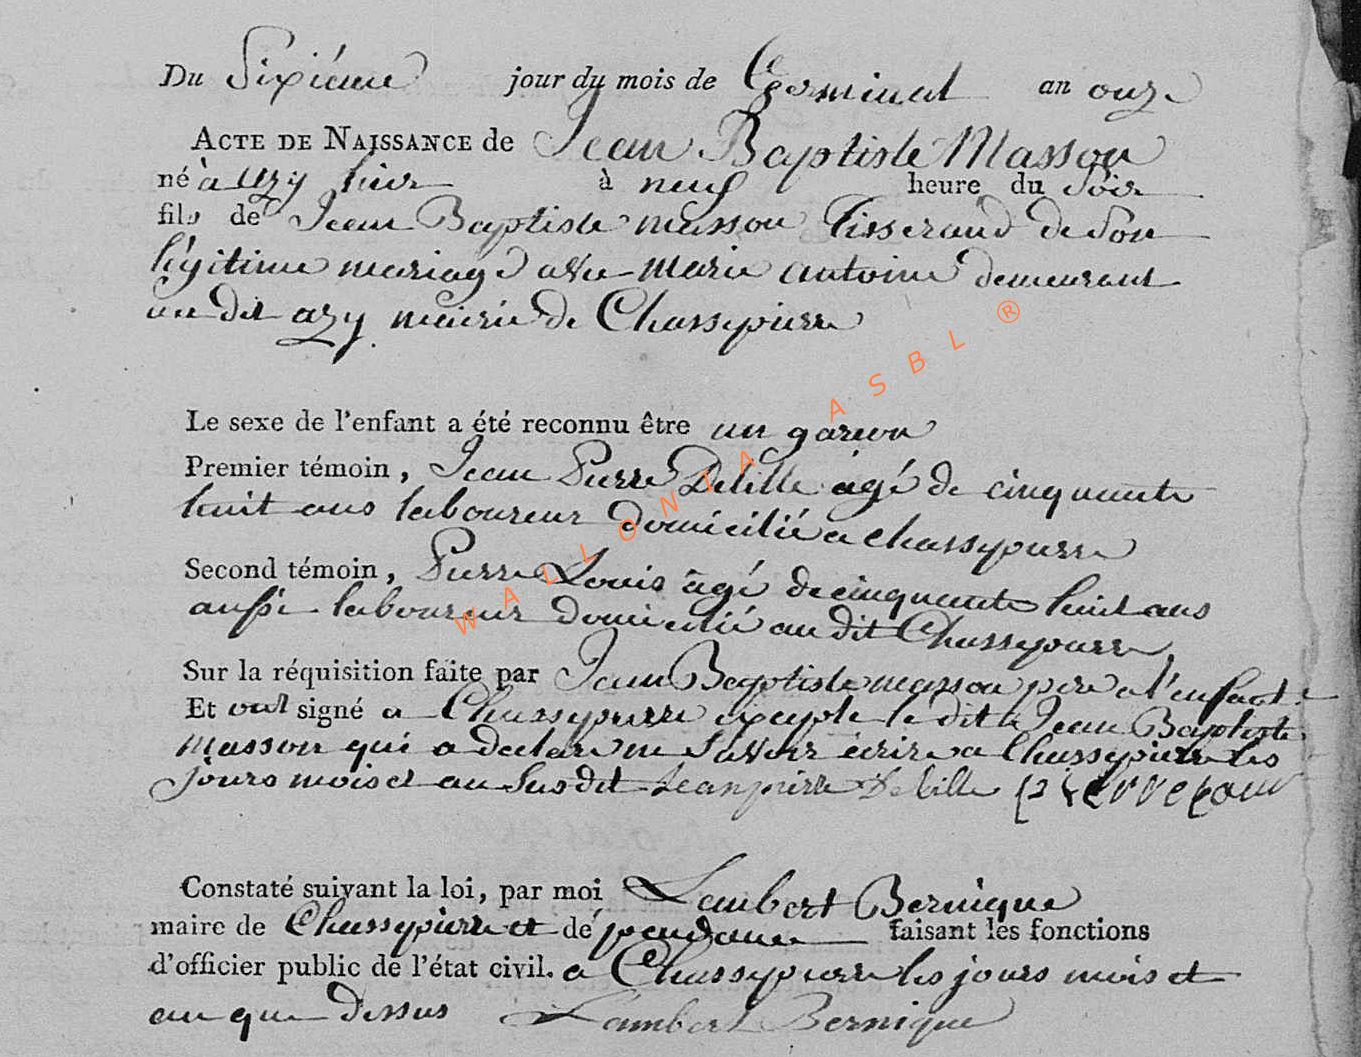 Du Sixiéme jour du mois de Germinal an onze
ACTE DE NAISSANCE de Jean Baptiste Masson
né à azy hier à neuf heure du Soir
fils de Jean Baptiste masson Tisserand de Son
légitime mariage avec Marie antoine demeurant
au dit azy mairie de Chassepierre
Le sexe de l'enfant a été reconnu être un garcon
Premier témoin, Jean Pierre Delille âgé de cinquante
huit ans laboureur domicilié a chassepierre
Second témoin, Pierre Louis âgé de cinquante huit ans
aussi laboureur domicilié au dit Chassepierre
Sur la réquisition faite par Jean Baptiste masson pere a l'enfant
Et ont signé a Chassepierre excepte le dit Jean Baptiste
Masson qui a declaré ne Savoir écrire a Chassepierre les
jours mois et an Susdit Jean pierre Delille
Constaté suivant la loi, par moi Lambert Bernique
maire de Chassepierre et dépendance faisant les fonctions
d'officier public de l'état civil. a Chassepierre les jours mois et
an que Dessus Lambert Bernique
WALLONIA ASBL ®